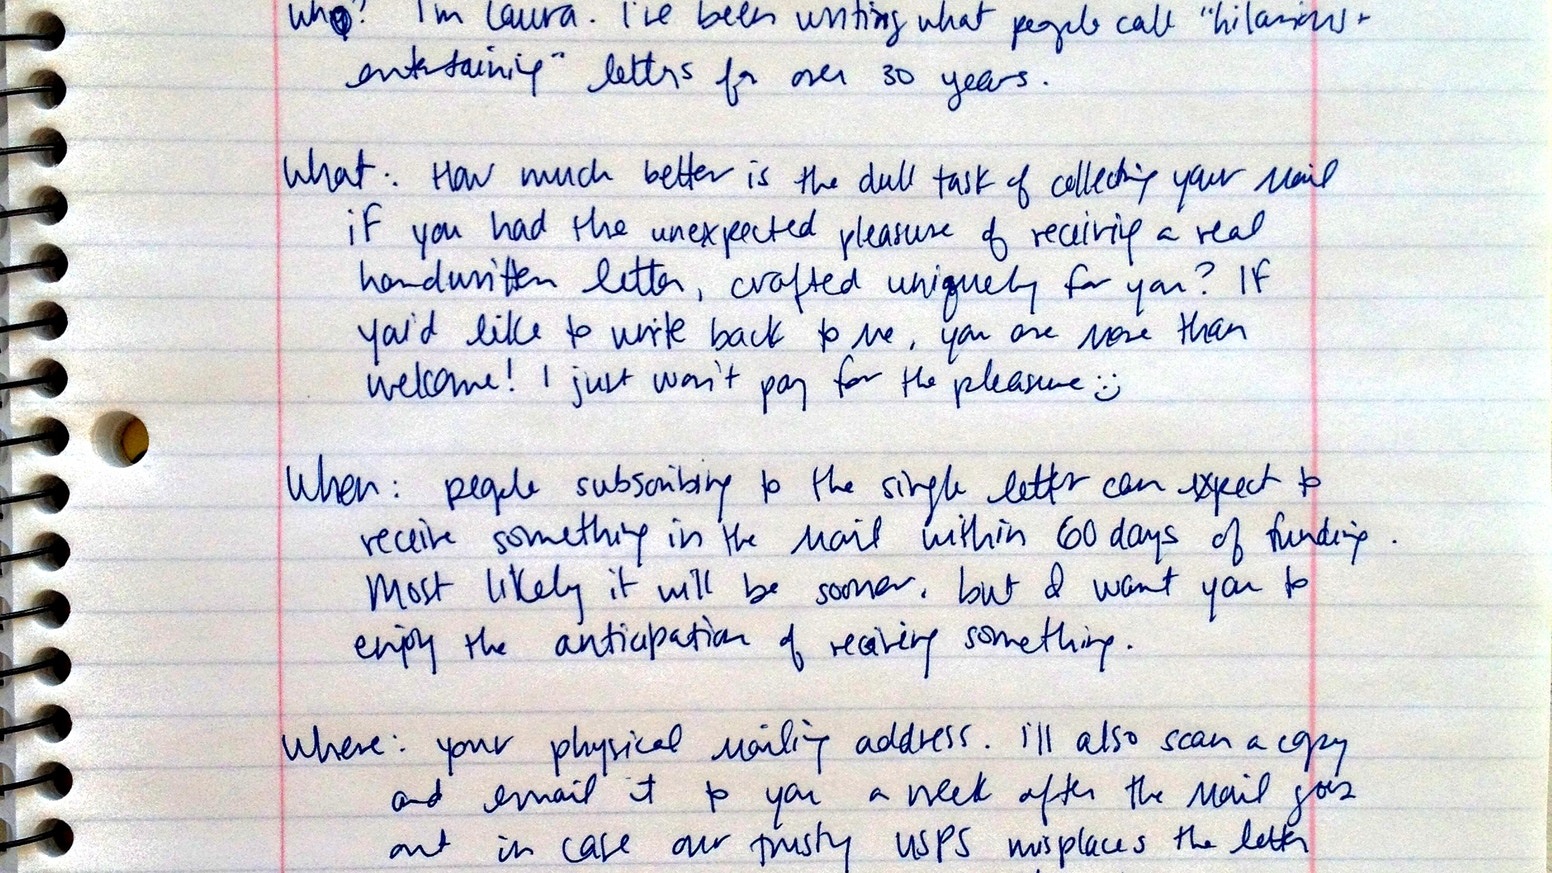 Who? I'm Laura. I've been writing what people call "hilarious +
entertaining" letters for over 30 years.
What: How much better is the dull task of collecting your mail
if you had the unexpected pleasure of receiving a real
handwritten letter, crafted uniquely for you? If
you'd like to write back to me, you are more than
welcome! I just won't pay for the pleasure :)
When: people subscribing to the single letter can expect to
receive something in the mail within 60 days of funding.
Most likely it will be sooner, but I want you to
enjoy the anticipation of receiving something.
Where: your physical mailing address. I'll also scan a copy
and email it to you a week after the mail goes
out in case our trusty USPS misplaces the letter